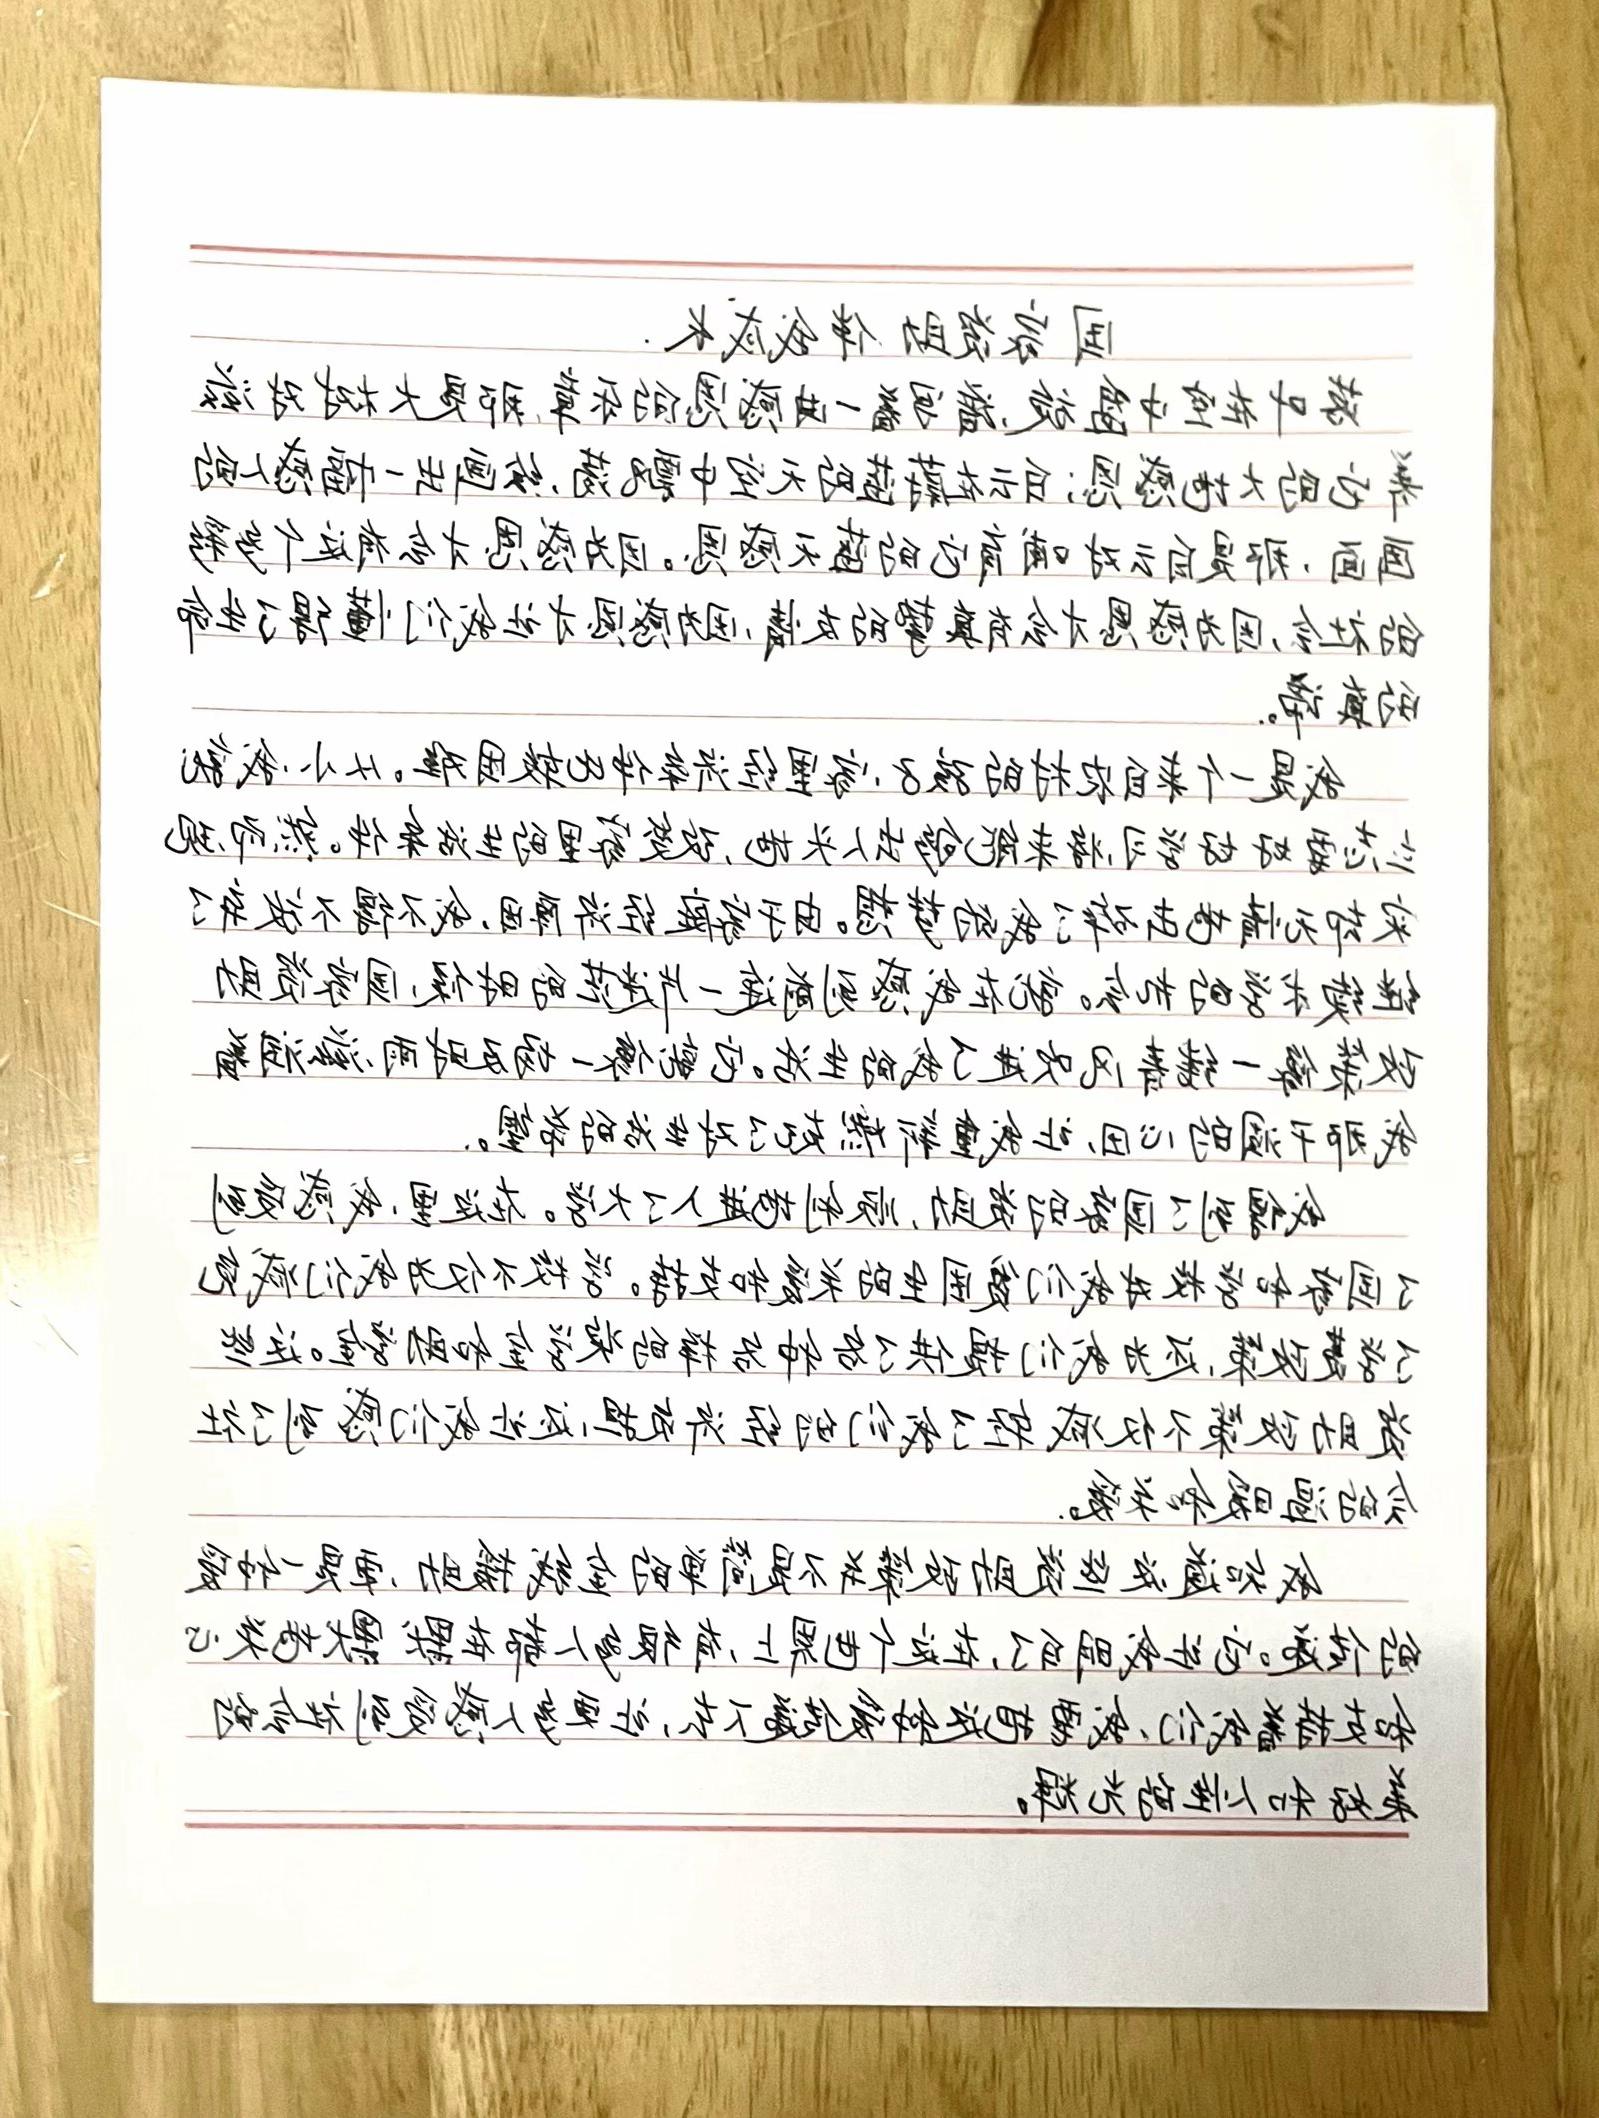 国家资助伴我成长.
落叶在空中盘旋,谱写着一曲感恩的乐章,那是大树对滋
养它的大地感恩;白云在蔚蓝的天空中飘荡,绘画出一幅幅感人的
画面,那是白云对哺育它的蓝天感恩。因为感恩才会有这个多彩
的社会,因为感恩才会有真挚的友情,因为感恩才让我们懂得了生命
的真谛。
我是一个来自农村的孩子,家里经济条件较困难。从小,我
要好好学习,将来能够出人头地,改变家里的生活条件。然
由于家庭经济困难,我不得不放弃了
继续求学的念头。就在我感到前途一片迷茫的时候,国家资助
政策像一缕春风吹进了我的生活。它像一场及时雨滋润着
我那干涸的心田,让我重新燃起了对生活的希望。
我得到了国家的资助,顺利地进入了大学。在这里,我感受到
了国家和学校为我们贫困生的关爱和扶持。学校不仅为我们减免
了学费政策,还为我们提供了各种各样的奖学金和助学金。这
资助政策不仅减轻了我们的经济负担,还让我们感到了社
会的温暖和关爱。
我知道这份资助政策不是简单的物质帮助,而是一种爱
的传递。它让我明白了,在这个世界上,有很多人都在默默地关心
和支持着我们,我要将这份爱传递下去,让更多人感受到这份温
暖和人生的光辉。